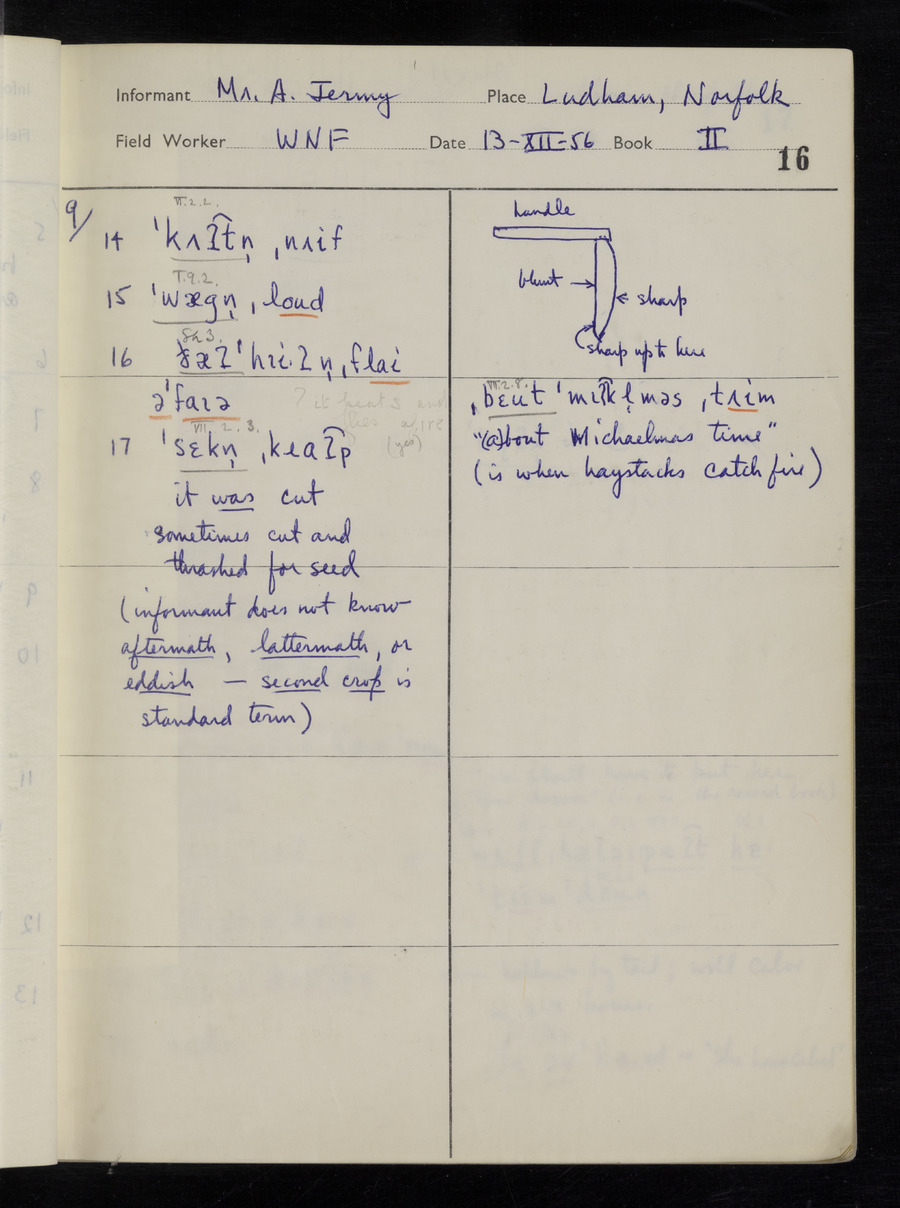 Informant Mr. A. Jermy Place Ludham, Norfolk
Field Worker WNF Date 13-XII-56 Book II
16
9/
VI.2.2.
14 ˈkʌɪʔtn̩ ,nʌif
T.9.2.
15 ˈwægn̩ , loud
16 ˈhɛi·ʔn̩ , flai
əˈfaɪə
? it heats and
flies afire
(yes)
VII. 2. 3.
17 ˈsɛkn̩ ,kɹaʔp
it was cut
sometimes cut and
thrashed for seed
(informant does not know
aftermath, lattermath, or
eddish — second crop is
standard term)
handle
blunt →
← sharp
sharp up to here
VII.2.8.
ˌbɛut ˈmɪʔkl̩məs ,tʌim
"(a)bout Michaelmas time"
(is when haystacks catch fire)